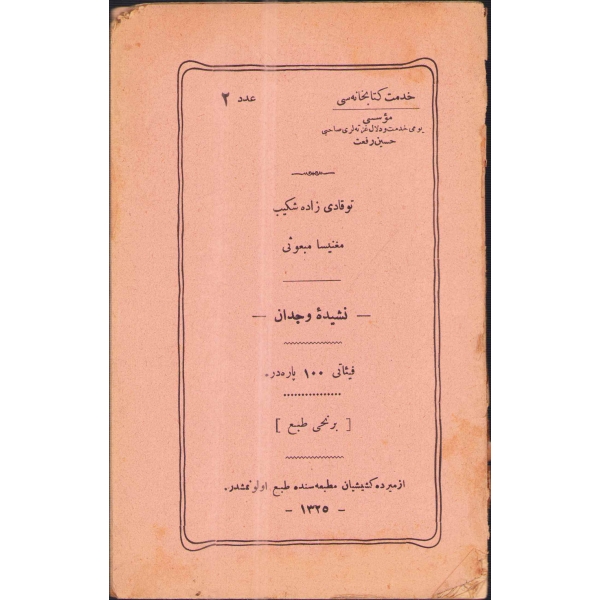 خدمت كتابخانه‌سی
عدد ٢
مؤسسی
يومی خدمت ودلال غزته‌لری صاحبی
حسين رفعت
توقادی زاده شكيب
مغنيسا مبعوثی
— نشيدهٔ وجدان —
فيئاتی ١٠٠ پاره‌در.
[ برنجی طبع ]
ازميرده كشيشيان مطبعه‌سنده طبع اولونمشدر.
- ١٣٢٥ -